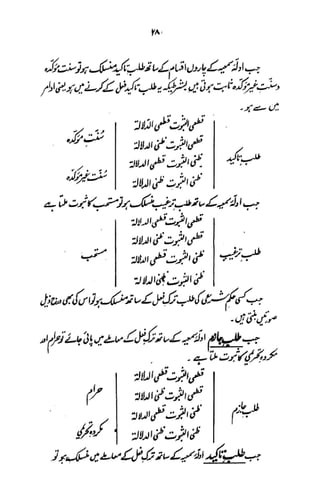 ۲۸۰
جب ادلۂ سمعیہ کے چاروں اقسام کے ساتھ طلب تاکید منسلک ہو تو سنت مؤکدہ
و سنت غیر مؤکدہ ثابت ہوتی ہیں بشرطیکہ یہ طلب تاکید فعل کے کرنے میں ہو یعنی اوامر
میں سے ہو۔
قطعی الثبوت قطعی الدلالۃ
سنت مؤکدہ
قطعی الثبوت ظنی الدلالۃ
طلب تاکید
ظنی الثبوت قطعی الدلالۃ
سنت غیر مؤکدہ
ظنی الثبوت ظنی الدلالۃ
جب ادلۂ سمعیہ کے ساتھ طلب ترغیب منسلک ہو تو مستحب کا ثبوت ملتا ہے
قطعی الثبوت قطعی الدلالۃ
قطعی الثبوت ظنی الدلالۃ
طلب ترغیب
مستحب
ظنی الثبوت قطعی الدلالۃ
ظنی الثبوت ظنی الدلالۃ
جب کسی حکم شرعی کی طلب ترک فعل کے ساتھ منسلک ہو تو اس کی بھی مندرجہ ذیل
صورتیں بنتی ہیں۔
جب طلب جازم ادلۂ سمعیہ کے ساتھ ترک فعل کے معاملے میں پائی جائے تو حرام اور
مکروہ تحریمی کا ثبوت ملتا ہے۔
قطعی الثبوت قطعی الدلالۃ
حرام
قطعی الثبوت ظنی الدلالۃ
طلب جازم
ظنی الثبوت قطعی الدلالۃ
مکروہ تحریمی
ظنی الثبوت ظنی الدلالۃ
جب طلب تاکید ادلۂ سمعیہ کے ساتھ ترک فعل کے معاملے میں منسلک ہو تو